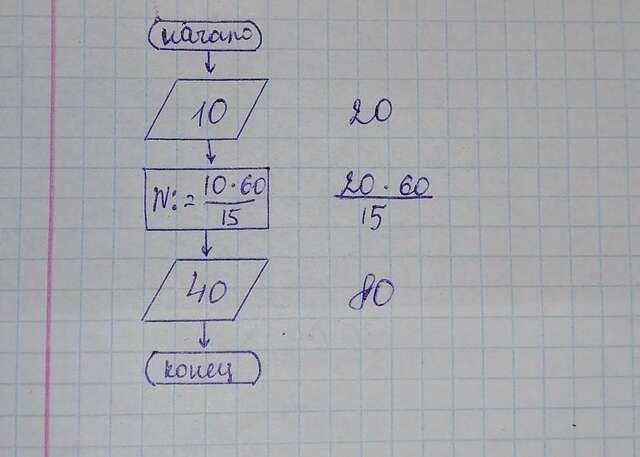 начало
10 20
N:= 10·60 / 15 20·60 / 15
40 80
конец